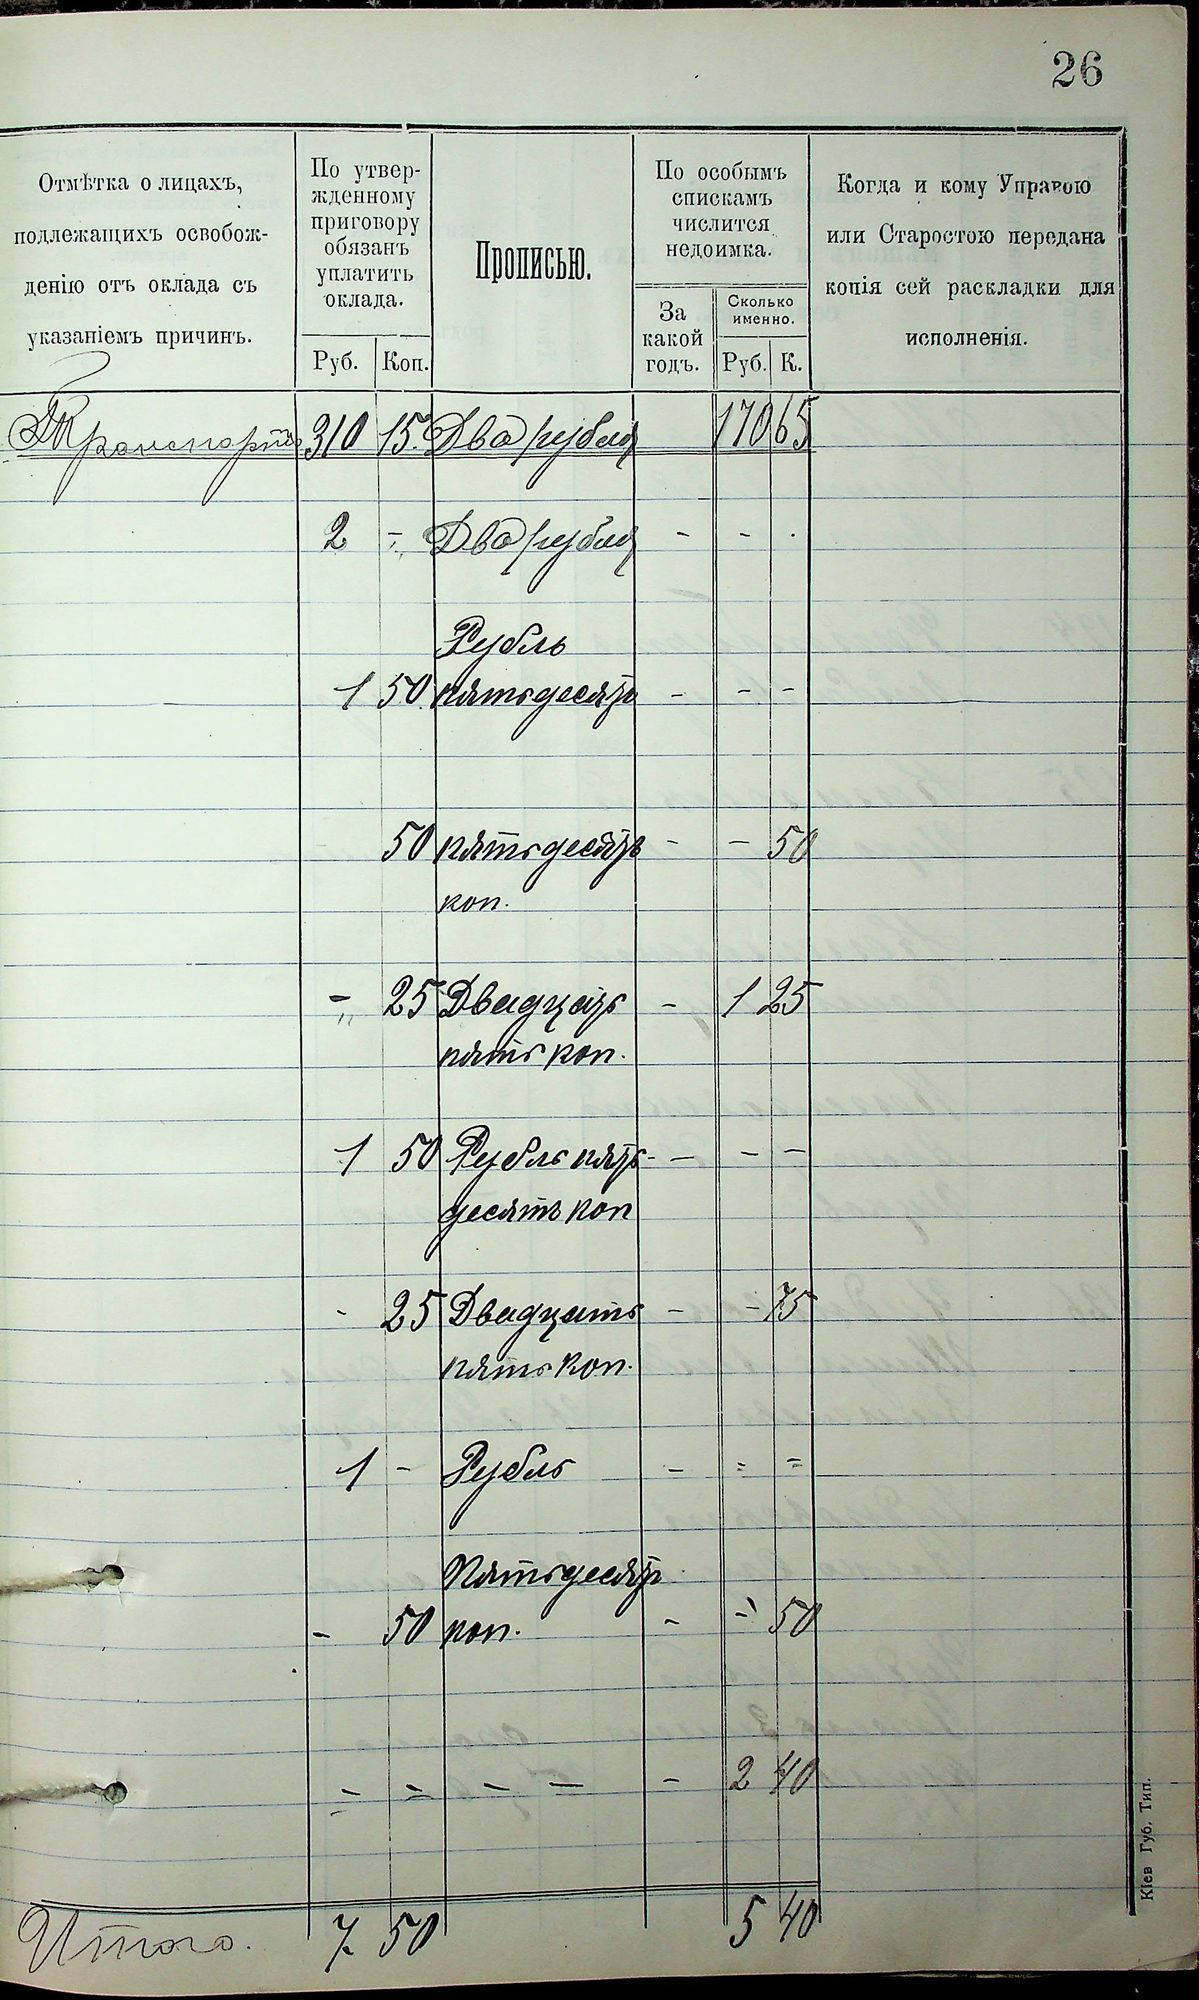 26
Отмѣтка о лицахъ,
подлежащихъ освобож-
денію отъ оклада съ
указаніемъ причинъ.
По утвер-
жденному
приговору
обязанъ
уплатить
оклада.
Руб. Коп.
Прописью.
По особымъ
спискамъ
числится
недоимка.
За
какой
годъ.
Сколько
именно.
Руб. К.
Когда и кому Управою
или Старостою передана
копія сей раскладки для
исполненія.
Транспортъ 310 15 Два рубля 170 65
2 - Два рубля - - -
Рубль
1 50 пятьдесятъ - - -
50 пятьдесятъ - - 50
коп.
- 25 Двадцать - 1 25
пять коп.
1 50 Рубль пять- - - -
десятъ коп
- 25 Двадцать - - 75
пять коп.
1 - Рубль - = =
Пятьдесятъ
- 50 коп. - - 50
= = - - - 2 40
Итого. 7 50 5 40
Кіев Губ. Тип.